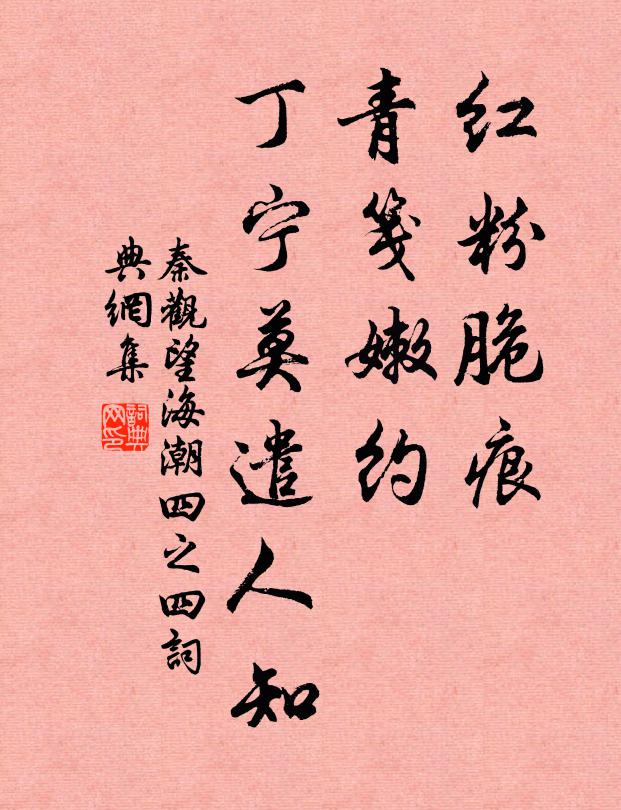 红粉脆痕
青笺嫩约
丁宁莫遣人知
秦觀望海潮四之四詞
典網集
詞典网印